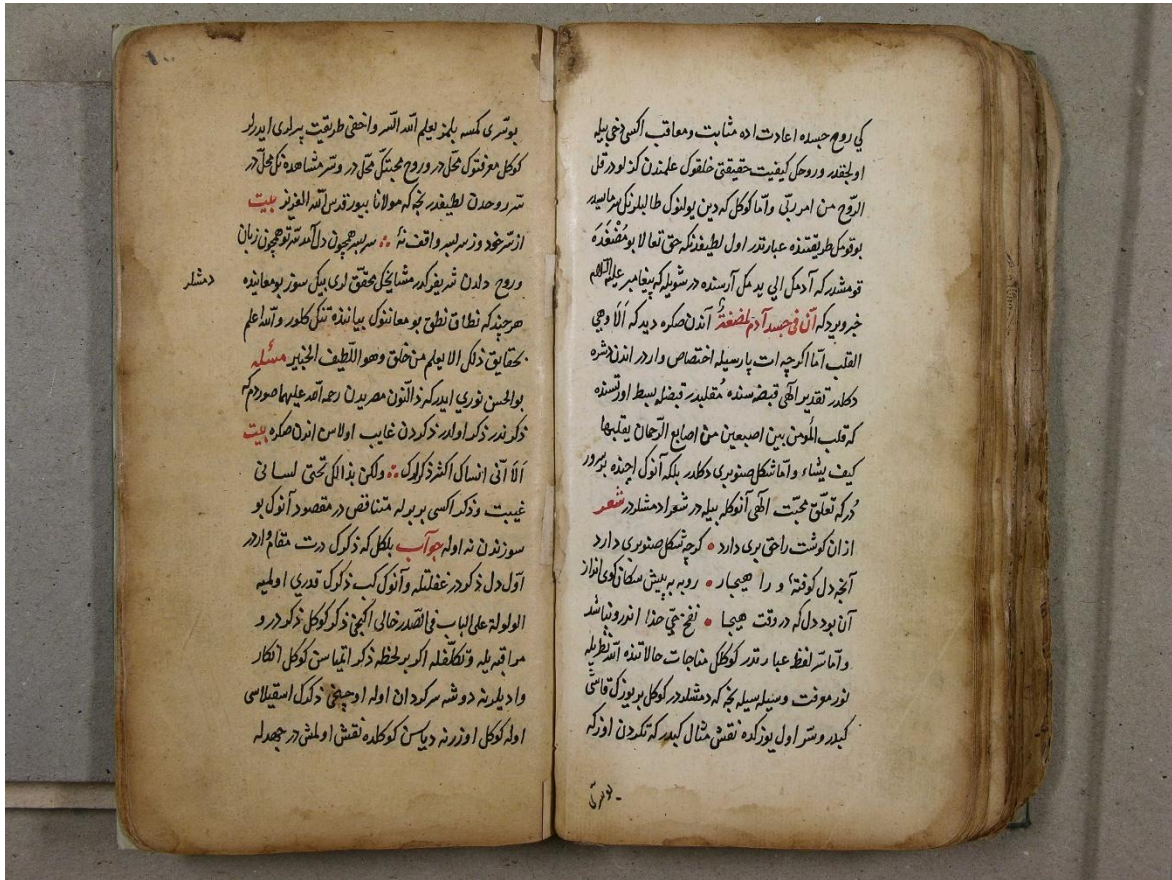 كی روح جسده اعادت اده مثابت ومعاقب اكسی دخی بیله
اولجقدر وروحك كیفیت حقیقتی خلقوك علمندن كزلودر قل
الروح من امر ربی واما كوكل كه دین یولنوك طالبلرنك سرماسیدر
بوقومك طریقتنده عبارتدر اول لطیفه‌دنكه حق تعالا بومضغه‌ده
قومشدر كه آدمك الی یدمك آرسنده در شویله كه پیغامبر علیه السلام
خبرویردكه ان فی جسد آدم لمضغة آندن صكره دیدكه الا وهی
القلب اما اكرچه ات پارسیله اختصاص واردر اندن دشره
دكلدر تقدیر الهی قبضه‌سنده مقلبدر قبضله بسط اورتسنده
كه قلب المومن بین اصبعین من اصابع الرحمان یقلبها
كیف یشاء واما شكل صنوبری دكلدر بلكه آنوك اچنده بر
دركه تعلق محبت الهی آنوكله بیله در شعراد مشلدر شعر
ازان كوشت راحتی بری دارد • كرچه شكل صنوبری دارد
آنچه دل كوفتهٔ و را هیجار • روبه به پیش سكان كوی انداز
آن بود دل كه در وقت هیجا • نفخ خدا اندرو نباشد
واما سر لفظ عبارتدر كوكلك مناجات حالاتنده الله نظریله
نور معرفت وسیله‌سیله نجه كه دمشلدر كوكل بریوزك قاشی
كبیدر وسر اول یوزكده نقش مثال كبیدر كه تكردن اوزكه
بوسری
بوسری كمسه بلمز یعلم الله السر واخفی طریقت پیرلری ایدرلر
كوكل معرفتوك محلی در وروح محبتك محلی در وسر مشاهده‌نك محلی در
سر روحدن لطیفدر نجه كه مولانا بیورر قدس الله العزیز بیت
از سر خود وز سر سر واقف نهٔ ∴ سر سر همچون دل آمد سر تو همچون زبان
وروح دلدن شریفدركدر مشایخك محقق لری بیكل سوز بومعانیده
دمشلر
هر چندكه نطاق نطق بومعانینوك بیاننده تنك كلور والله اعلم
بحقایق ذلك الا یعلم من خلق وهو اللطیف الخبیر مسئله
بوالحسن نوری ایدر كه ذالنون مصریدن رحمه الله علیهما صوردم كه
ذكر ندر ذكر اولدر ذكردن غایب اولاسن اندن صكره بیت
الا انی انساك اكثر ذكراك ∴ ولكن بذالك تحتی لسانی
غیبت وذكر اكسی بربرله متناقض در مقصود آنوك بو
سوزندن نه اوله جوآب بلكل كه ذكرك درت مقام واردر
اول دل ذكردر غفلتله وآنوك كب ذكرك قدری اولمیه
الولولة علی الباب فی الصدر خالی اكنجی ذكر كوكل ذكردر و
مراقبه یله وتكلفله اكر بر لحظه ذكر اتمیاسن كوكل انكار
وادیلرنه دوشه سركردان اوله اوچنجی ذكرك استیلاسی
اوله كوكل اوزرنه دیاسن كوكلده نقش اولمش در جهدله